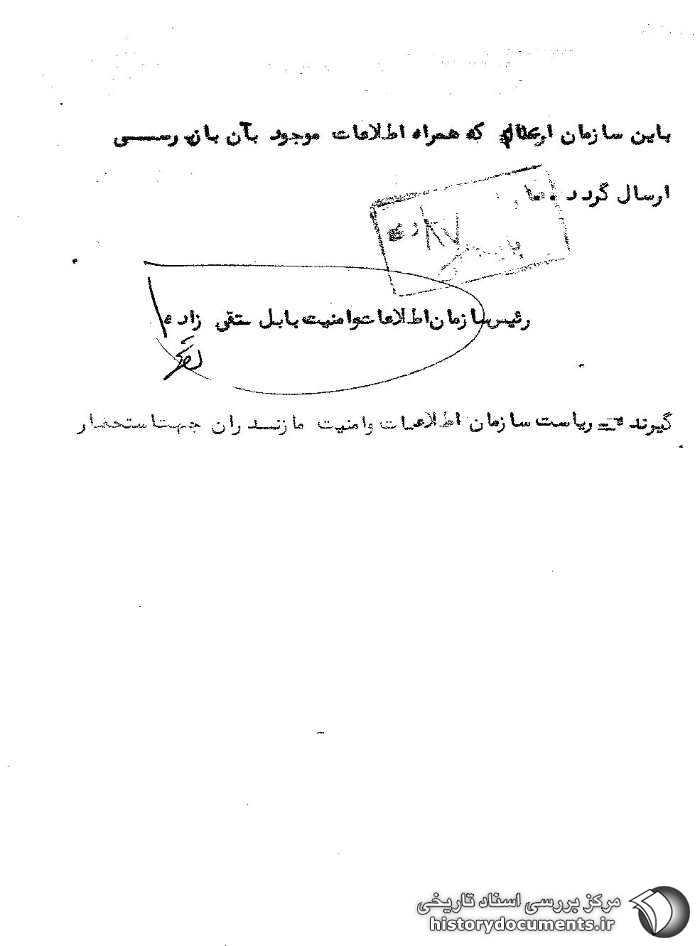 باین سازمان ارسال که همراه اطلاعات موجود بآن بازرسی
ارسال گردد .
رئیس سازمان اطلاعات و امنیت بابل . تقی زاده
گیرنده ریاست سازمان اطلاعات و امنیت مازندران جهت استحضار
مرکز بررسی اسناد تاریخی
historydocuments.ir